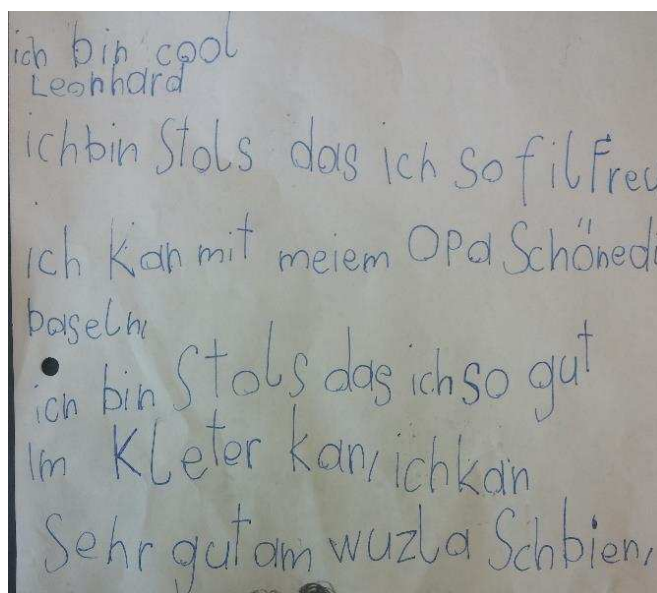 ich bin cool
Leonhard
ichbin Stols das ich so fil Freu
ich kan mit meiem Opa Schönedi
baseln,
ich bin Stols das ich so gut
im Kleter kan, ich kan
Sehr gut am wuzla Schbien,